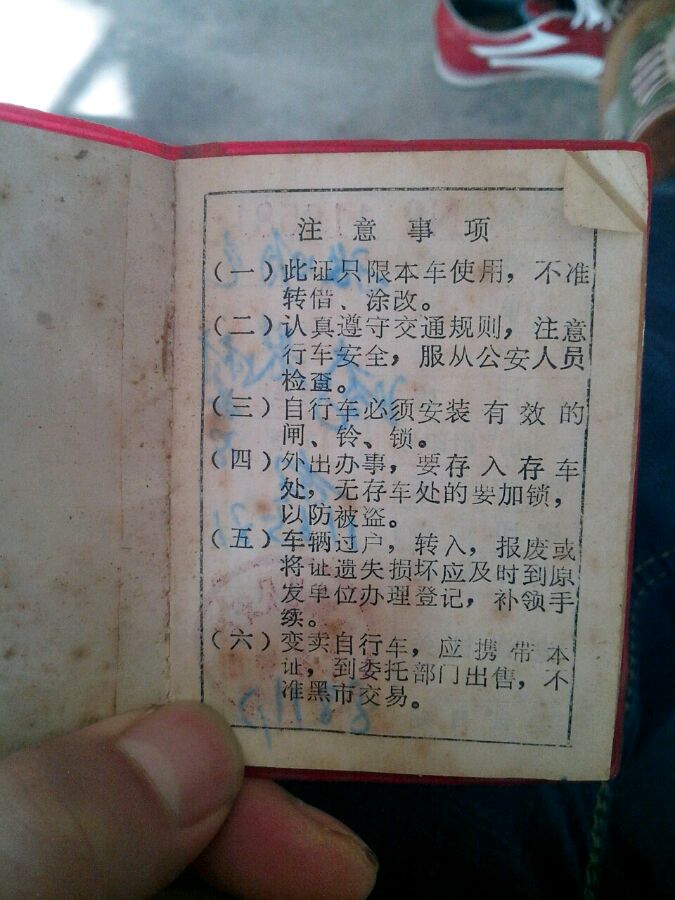 注意事项
（一）此证只限本车使用，不准
转借、涂改。
（二）认真遵守交通规则，注意
行车安全，服从公安人员
检查。
（三）自行车必须安装有效的
闸、铃、锁。
（四）外出办事，要存入存车
处，无存车处的要加锁，
以防被盗。
（五）车辆过户，转入，报废或
将证遗失损坏应及时到原
发单位办理登记，补领手
续。
（六）变卖自行车，应携带本
证，到委托部门出售，不
准黑市交易。